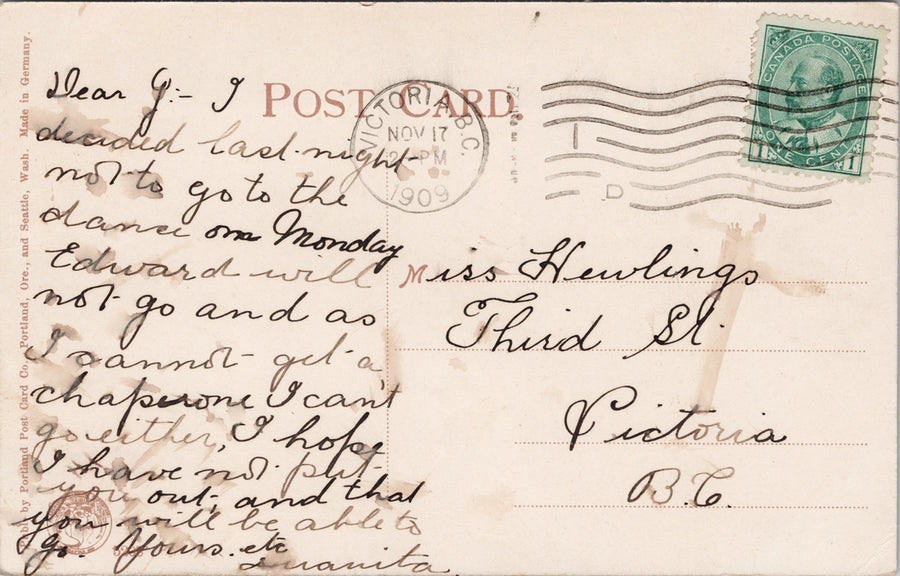 Publ. by Portland Post Card Co., Portland, Ore., and Seattle, Wash. Made in Germany.
POST CARD
VICTORIA B.C.
NOV 17
PM
1909
D
CANADA POSTAGE
ONE CENT
1 1
Dear G:- I
decided last night
not to go to the
dance on Monday
Edward will
not go and as
I cannot get a
chaperone I can't
go either, I hope
I have not put
you out, and that
you will be able to
go. Yours. etc
Juanita
Miss Hewlings
Third St.
Victoria
B.C.